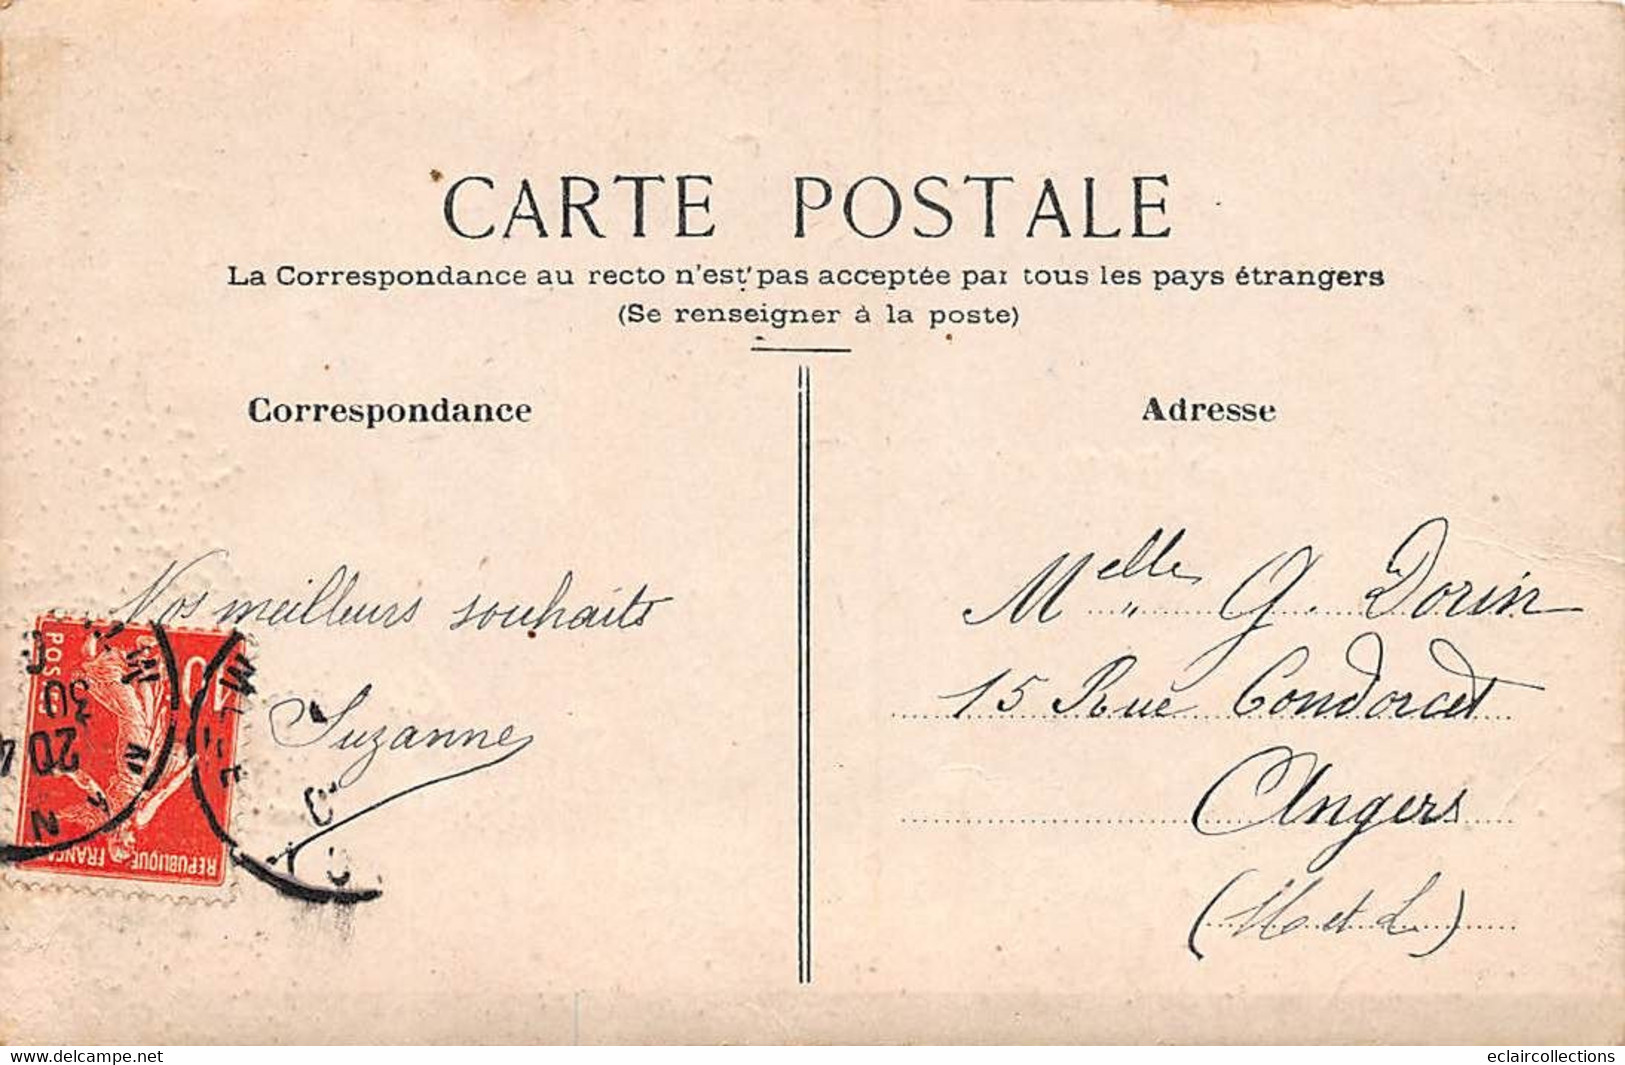 CARTE POSTALE
La Correspondance au recto n'est pas acceptée par tous les pays étrangers
(Se renseigner à la poste)
Correspondance
Adresse
Nos meilleurs souhaits
Suzanne
Melle G. Dorin
15 Rue Condorcet
Angers
(M et L.)
POSTES
10
REPUBLIQUE FRANÇA
www.delcampe.net
eclaircollections